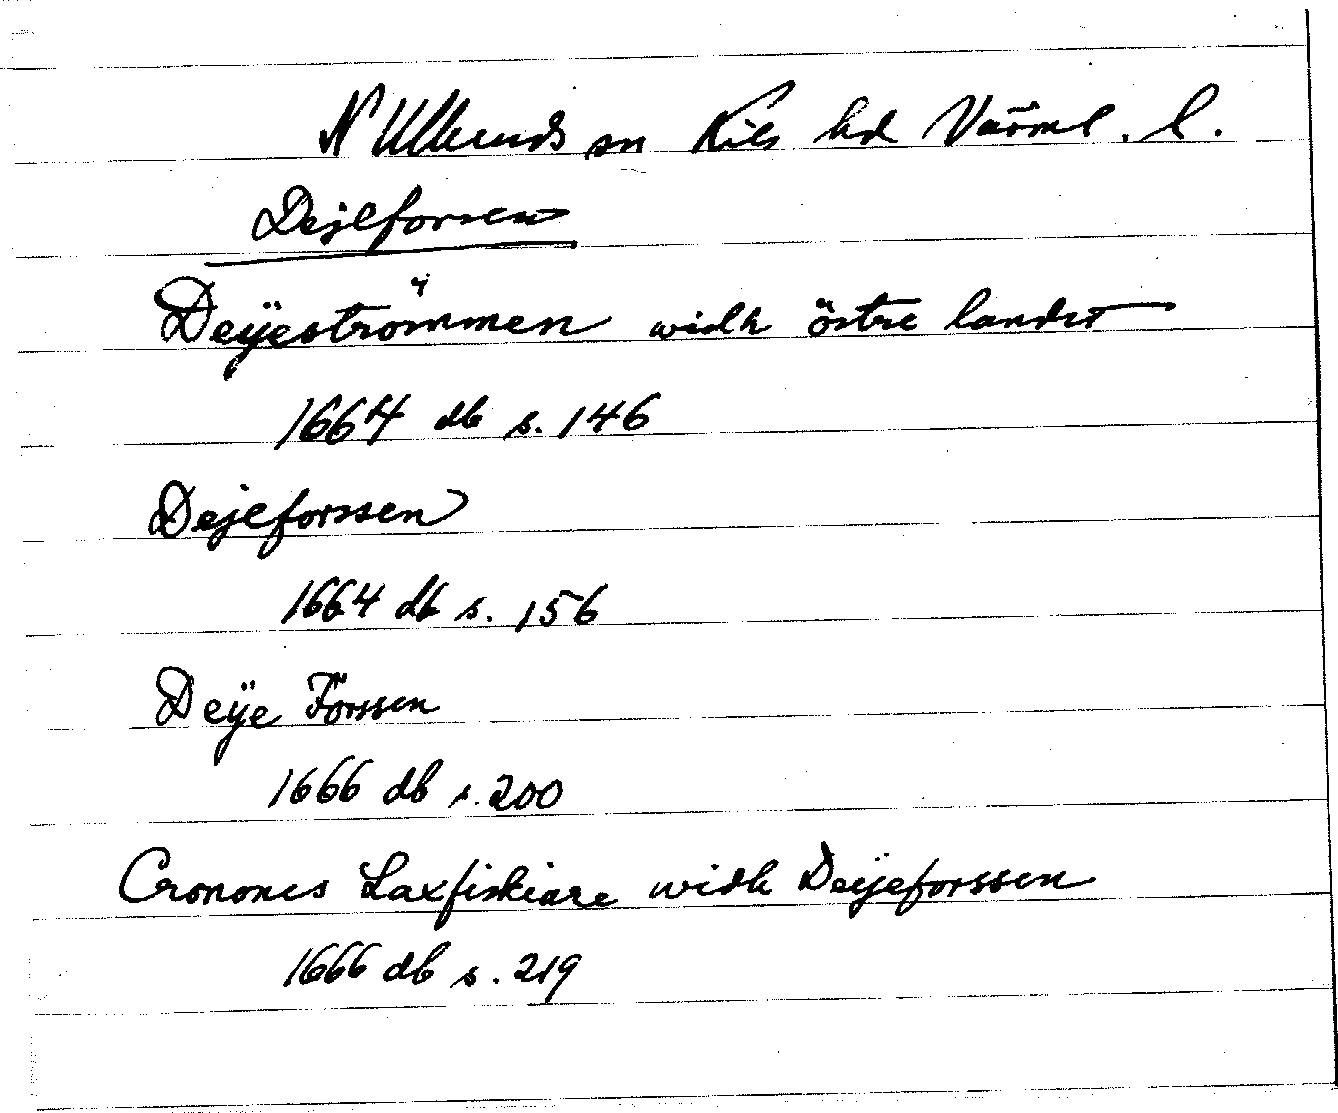 N Ulleruds sn Kils hd Värml. l.
Dejeforsen
Deÿeströmmen widh östre landet
1664 db s. 146
Dejeforssen
1664 db s. 156
Deÿe Forssen
1666 db s. 200
Cronones Laxfiskiare widh Deÿeforssen
1666 db s. 219